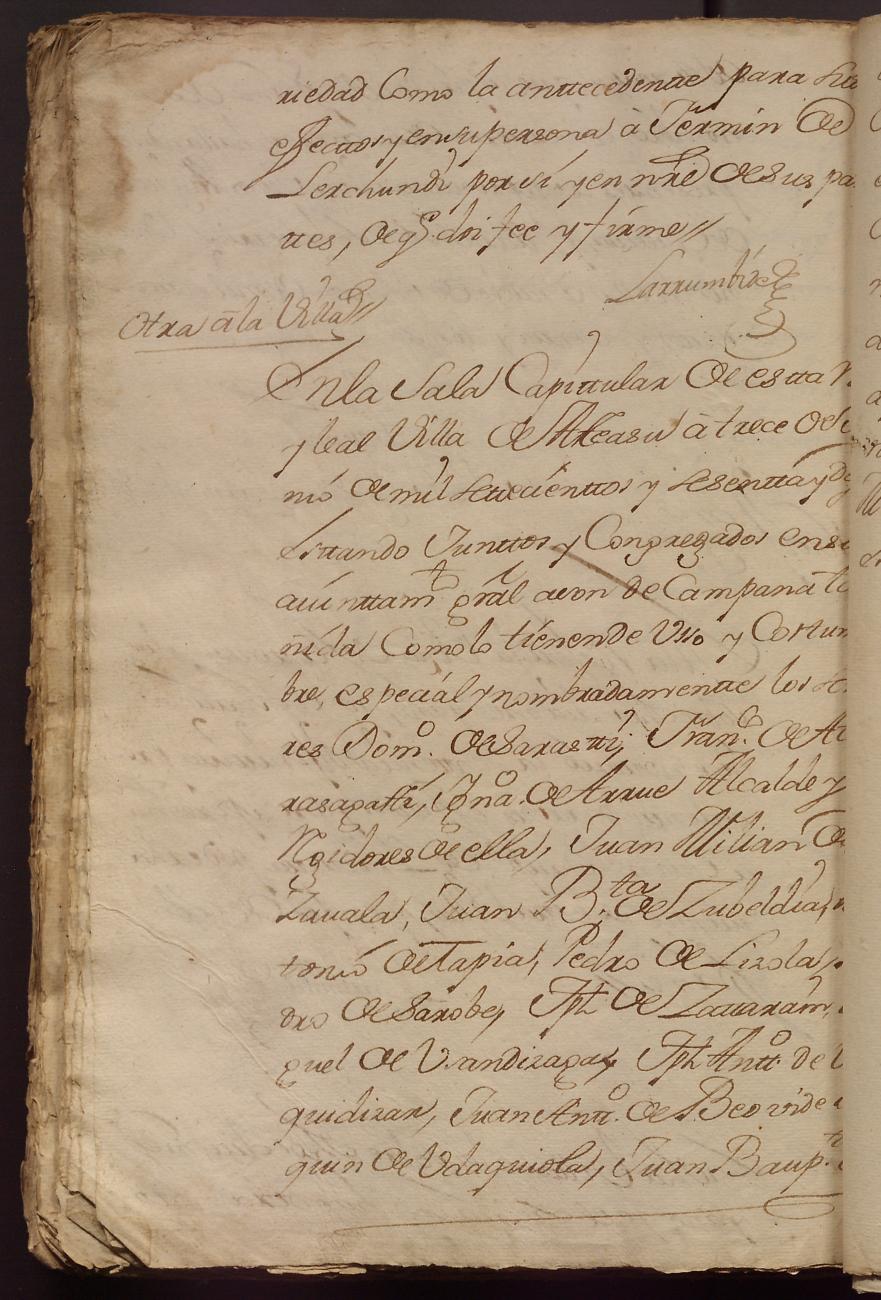 riedad Como la anttecedentte para sus
efecttos y en su persona à Fermin de
Lerchundi por sí y en nrē de sus pa
ttes, de qᵉ doi fee y firme//
Larrumbide
Otra à la Villa//
En la Sala Capittular de estta N.
y leal Villa de Atteasu à trece de Ju
nio de mil settecienttos y sesentta y
Esttando Junttos y Congregados en su
aiunttamᵗᵒ grāl a son de Campana ta
ñida Como lo tienen de Uso y Costum
bre, especial y nombradamentte los se
res Domᵒ. de Sarastti, Franᶜᵒ. de Ar
rasagastti, Ygnᵒ. de Arrue Alcalde y
Rexidores de ella, Juan Milian de
Zauala, Juan B.ᵗᵃ de Zubeldia,
tonio de Tapia, Pedro de Lizola,
dro de Sarobe, Jph de Zattarain,
guel de Vrandizaga, Jph Anttᵒ de
quidizar, Juan Anttᵒ. de Beovide
quin de Udaquiola, Juan Baup.ᵗᵃ